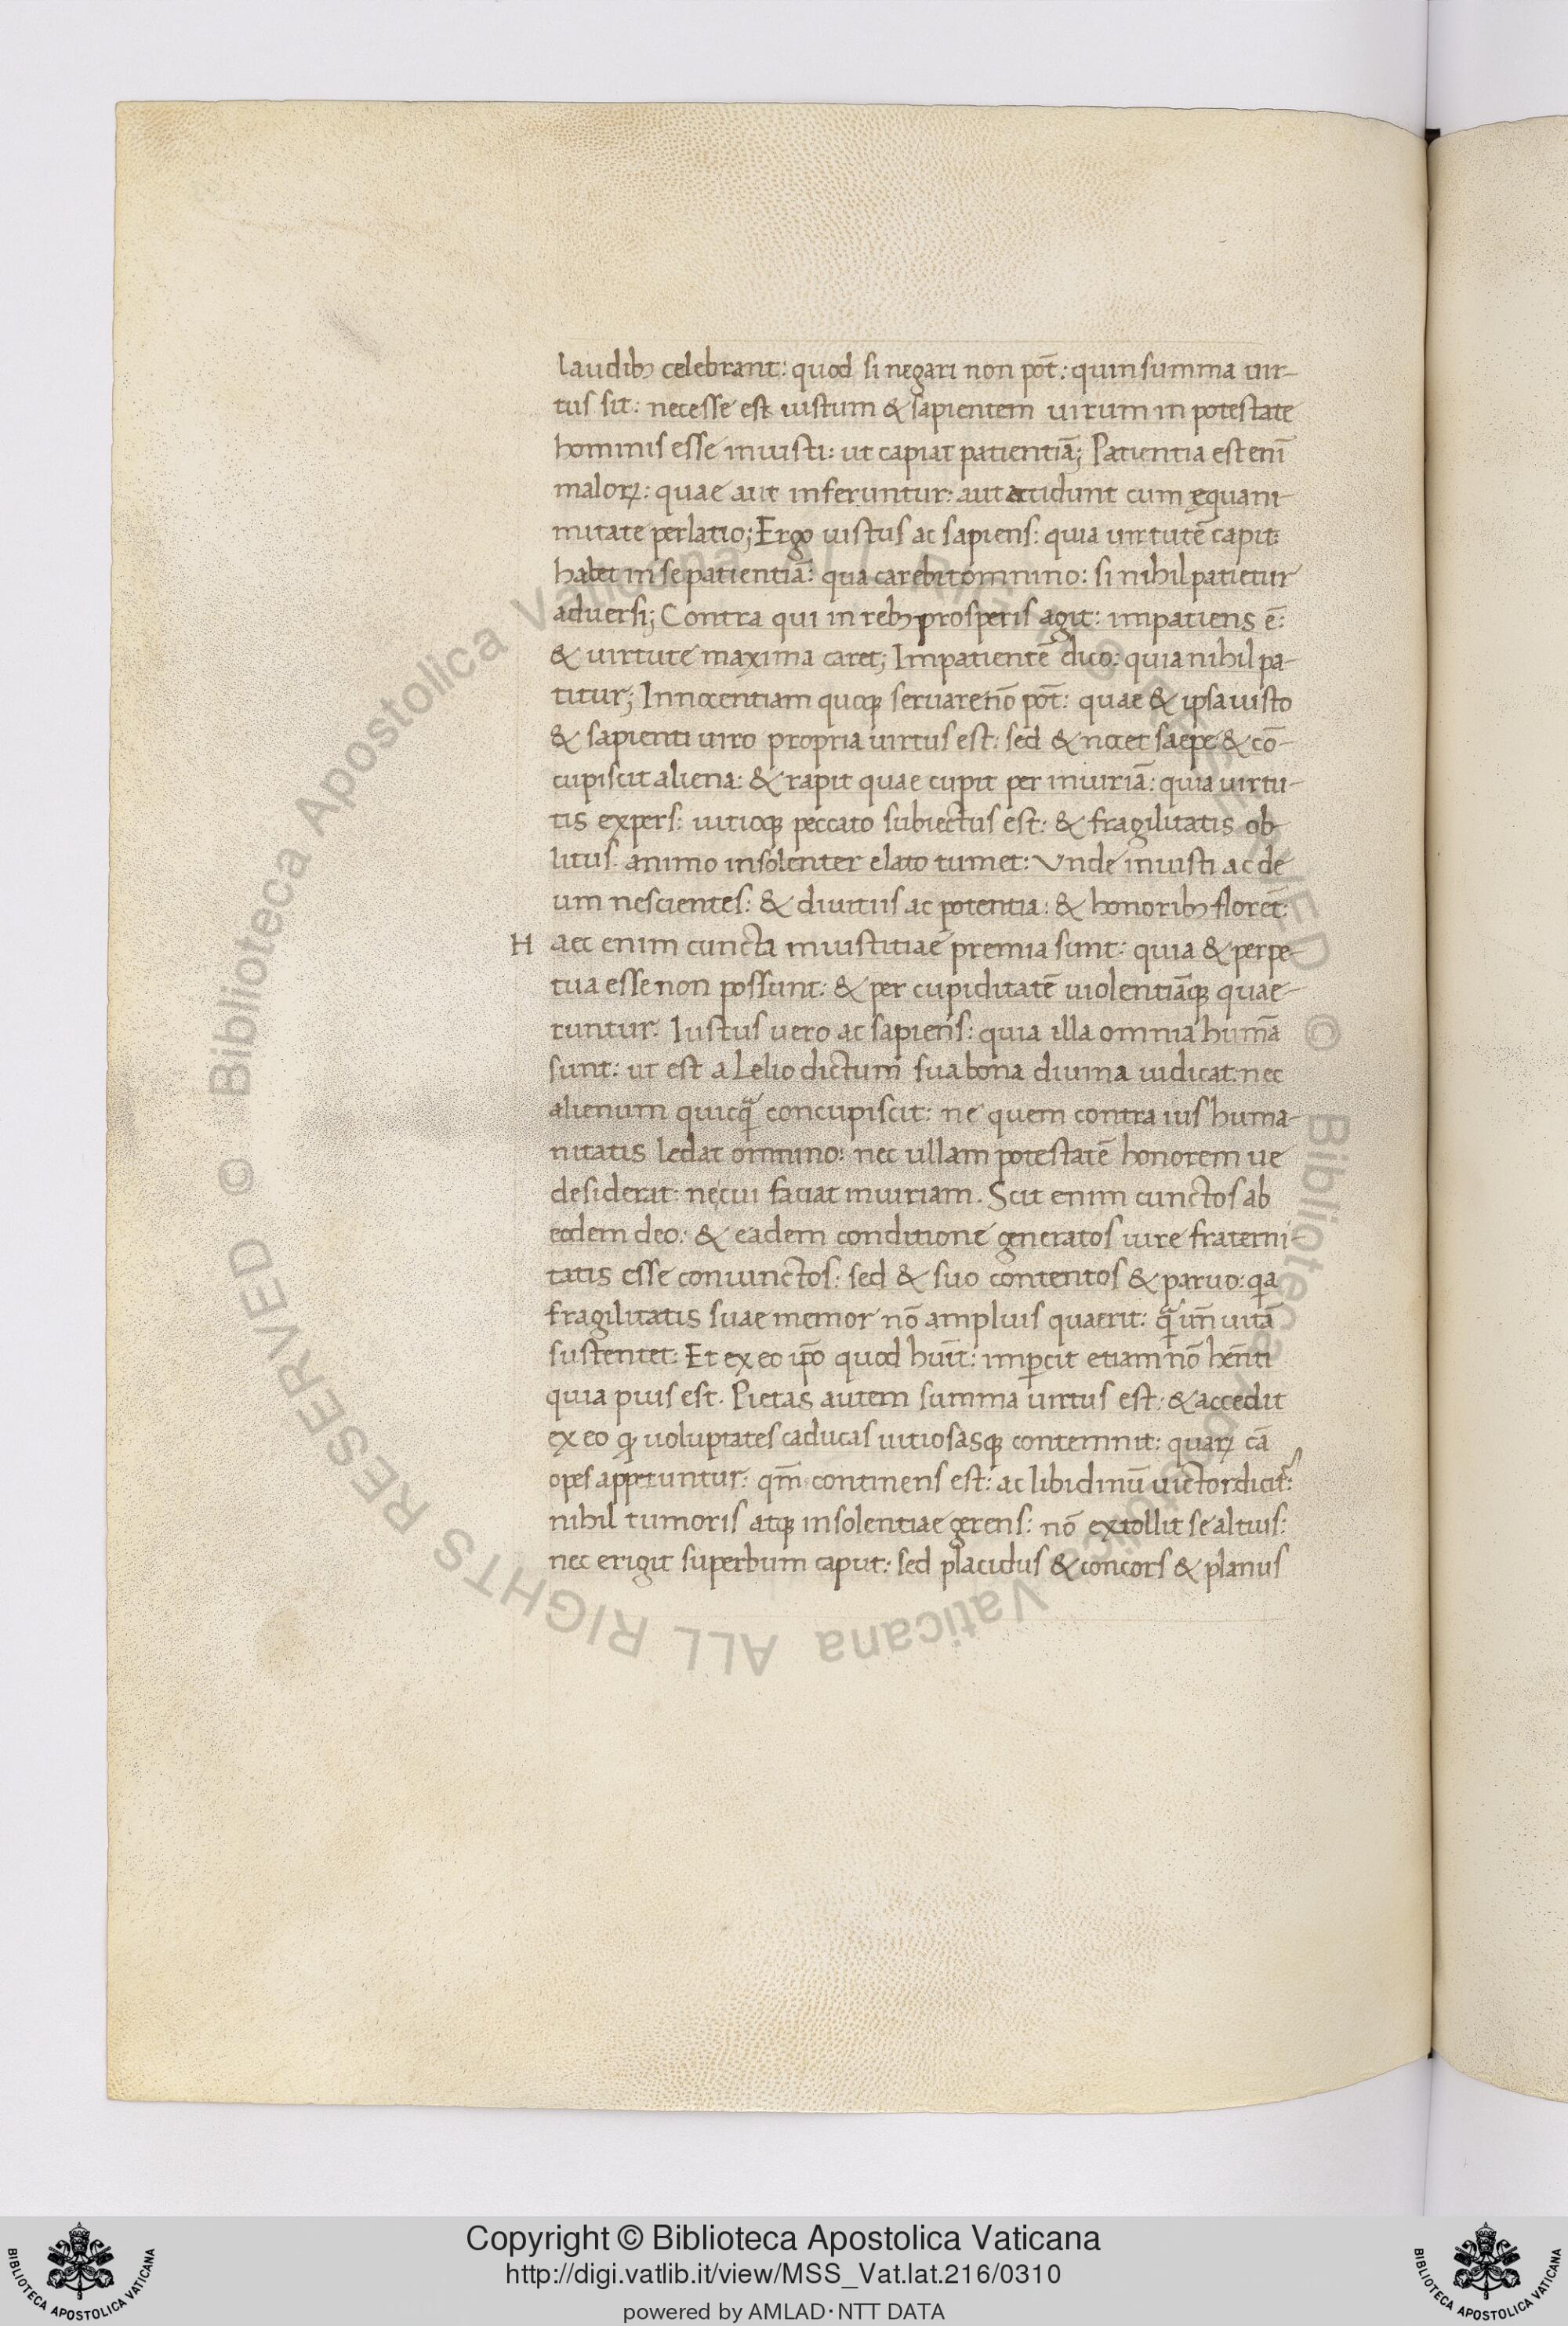 laudibꝫ celebrant: quod si negari non põt: quin summa uir-
tus sit: necesse est iustum & sapientem uirum in potestate
hominis esse iniusti: ut capiat patientiã; Patientia est eni᷑
maloꝝ: quae aut inferuntur: aut accidunt cum ęquani-
mitate perlatio; Ergo iustus ac sapiens: quia uirtutẽ capit:
habet in se patientiã: qua carebit omnino: si nihil patietur
aduersi; Contra qui in rebꝫ prosperis agit: impatiens ẽ:
& uirtute maxima caret; Impatientẽ dico: quia nihil pa-
titur; Innocentiam quoqꝫ seruare nõ põt: quae & ipsa iusto
& sapienti uiro propria uirtus est: sed & nocet saepe & cõ-
cupiscit aliena: & rapit quae cupit per iniuriã: quia uirtu-
tis expers: uitioqꝫ peccato subiectus est: & fragilitatis ob
litus animo insolenter elato tumet: Vnde iniusti ac de
um nescientes: & diuitiis ac potentia: & honoribꝫ florẽt:
H aec enim cuncta iniustitiae premia sunt: quia & perpe-
tua esse non possunt: & per cupiditatẽ uiolentiãqꝫ quae-
runtur. Iustus uero ac sapiens: quia illa omnia humãa
sunt: ut est a Lelio dictum sua bona diuina iudicat: nec
alienum quicq̃ concupiscit: ne quem contra ius huma-
nitatis ledat omnino: nec ullam potestatẽ honorem ue
desiderat: ne cui faciat iniuriam. Scit enim cunctos ab
eodem deo: & eadem conditione generatos iure fraterni-
tatis esse coniunctos: sed & suo contentos & paruo: qa
fragilitatis suae memor nõ amplius quaerit: q̃ uñ uitã
sustentet: Et ex eo ip̃o quod huĩt: imꝑcit etiam nõ hẽnti
quia pius est. Pietas autem summa uirtus est: & accedit
ex eo ꝙ uoluptates caducas uitiosasqꝫ contemnit: quaꝝ cã
opes appetuntur: qm̃ continens est: ac libidinũ uictor dicit̃:
nihil tumoris atqꝫ insolentiae gerens: nõ extollit se altius:
nec erigit superbum caput: sed placidus & concors & planus
© Biblioteca Apostolica Vaticana ALL RIGHTS RESERVED © Biblioteca Apostolica Vaticana ALL RIGHTS RESERVED
Copyright © Biblioteca Apostolica Vaticana
http://digi.vatlib.it/view/MSS_Vat.lat.216/0310
powered by AMLAD·NTT DATA
BIBLIOTECA APOSTOLICA VATICANA
BIBLIOTECA APOSTOLICA VATICANA